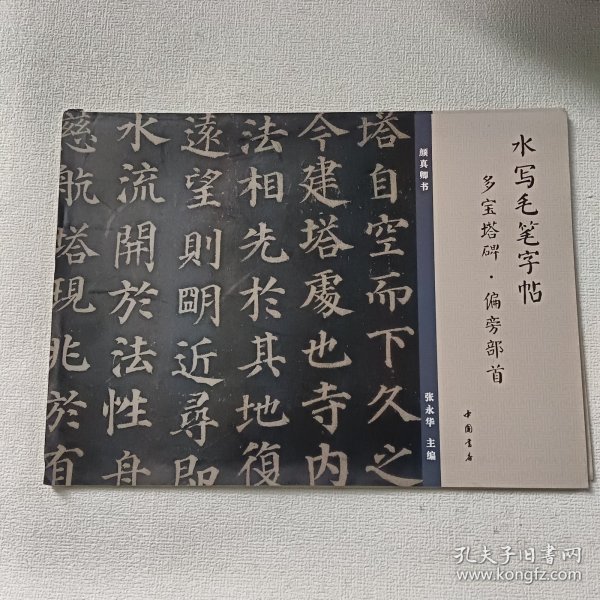 水写毛笔字帖
多宝塔碑·偏旁部首
中国书店
颜真卿书
张永华 主编
塔自空而下久之
今建塔處也寺内
法相先於其地復
遠望則明近尋即
水流開於法性舟
慈航塔現兆於有
孔夫子旧书网
www.kongfz.com